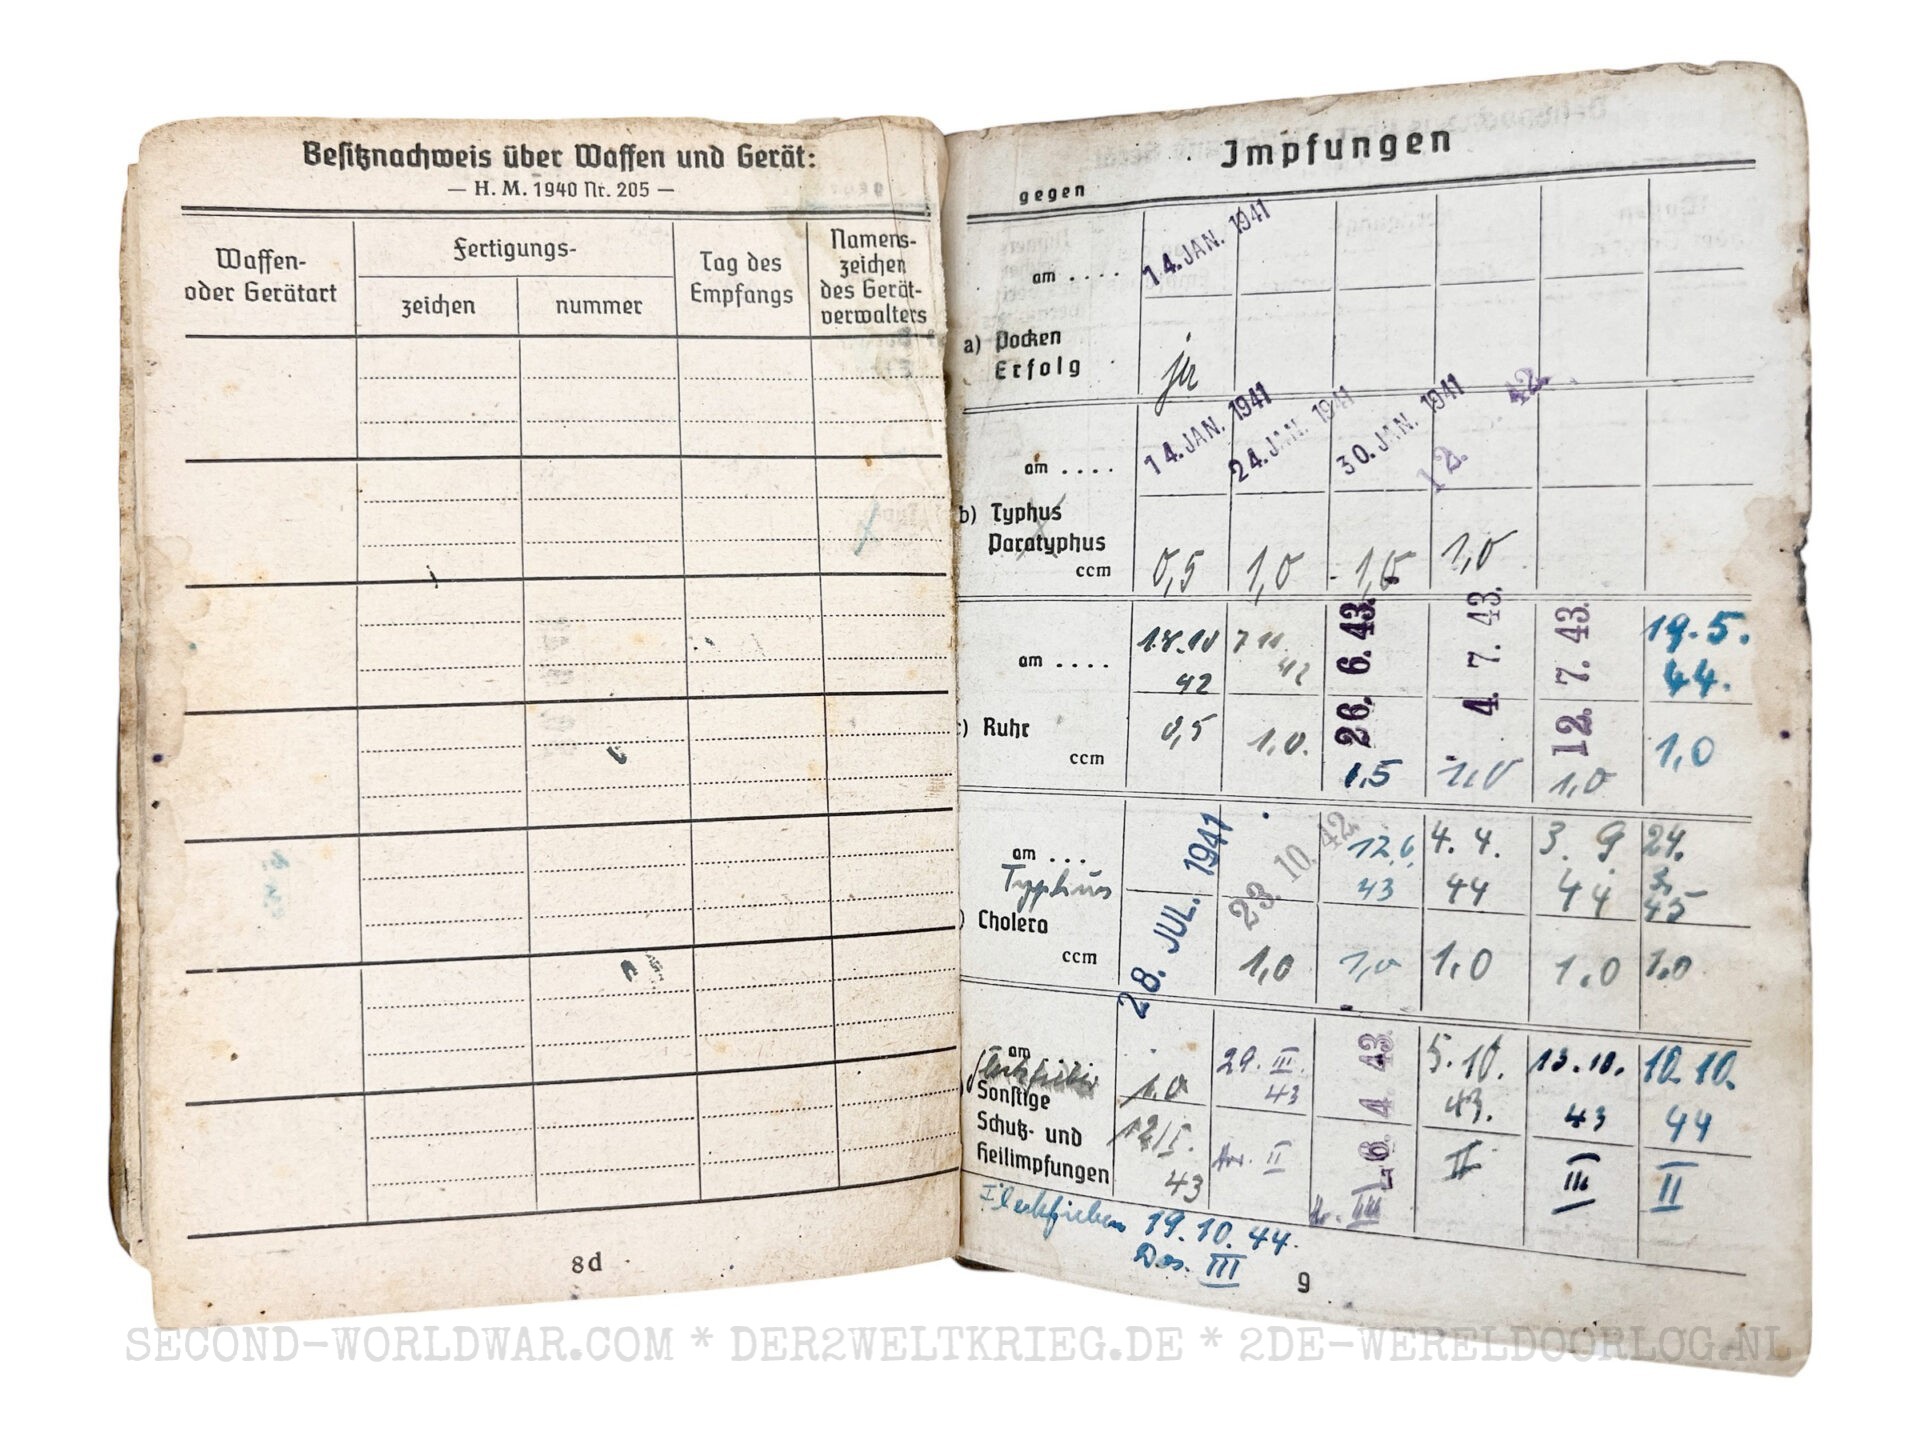 Besitznachweis über Waffen und Gerät:
— H. M. 1940 Nr. 205 —
Waffen-
oder Gerätart
Fertigungs-
zeichen
nummer
Tag des
Empfangs
Namens-
zeichen
des Gerät-
verwalters
8d
Impfungen
gegen
am . . . .
14. JAN. 1941
a) Pocken
Erfolg
ja
am . . . .
14. JAN. 1941
24. JAN. 1941
30. JAN. 1941
12.
42.
b) Typhus
Paratyphus
ccm
0,5
1,0
1,0
1,0
am . . . .
42
7 11
42
26. 6. 43.
4. 7. 43.
12. 7. 43.
19. 5.
44.
) Ruhr
ccm
0,5
1,0.
1,5
1,0
1,0
1,0
am . . .
28. JUL. 1941
23. 10. 42
12. 6.
43
4. 4.
44
3. 9.
44
24.
3.
45
Typhus
) Cholera
ccm
1,0
1,0
1,0
1.0
1.0
am
1,0
29. III.
43
4. 43
5. 10.
43.
13. 10.
43
10. 10.
44
Sonstige
Schutz- und
Heilimpfungen
43
II
III
II
III
II
Fleckfieber 19. 10. 44.
Dos. III
9
SECOND-WORLDWAR.COM * DER2WELTKRIEG.DE * 2DE-WERELDOORLOG.NL